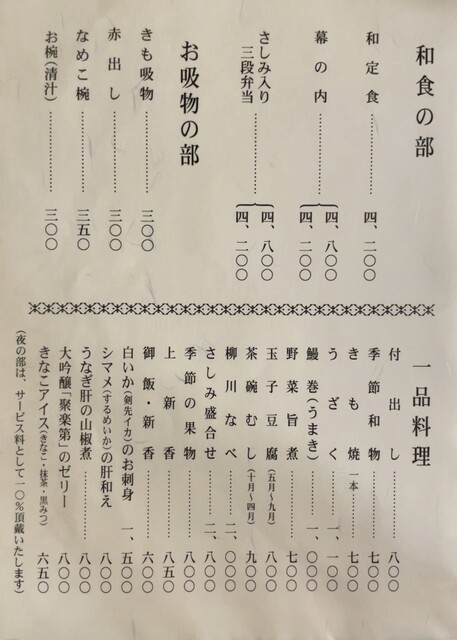 和食の部
和定食……四、二〇〇
幕の内……四、八〇〇
四、二〇〇
さしみ入り
三段弁当……四、八〇〇
四、二〇〇
お吸物の部
きも吸物……三〇〇
赤出し……三〇〇
なめこ椀……三五〇
お椀(清汁)……三〇〇
一品料理
付出し……八〇〇
季節和物……七〇〇
きも焼 一本……七〇〇
うざく……一、一〇〇
鰻巻(うまき)……一、〇〇〇
野菜旨煮……七〇〇
玉子豆腐(五月〜九月)……八〇〇
茶碗むし(十月〜四月)……九〇〇
柳川なべ……二、〇〇〇
さしみ盛合せ……二、八〇〇
季節の果物……八〇〇
上新香……八五〇
御飯・新香……六〇〇
白いか(剣先イカ)のお刺身 一、五〇〇
シマメ(するめいか)の肝和え……八〇〇
うなぎ肝の山椒煮……八〇〇
大吟醸「聚楽第」のゼリー……八〇〇
きなこアイス(きなこ・抹茶・黒みつ)……六五〇
(夜の部は、サービス料として一〇％頂戴いたします)